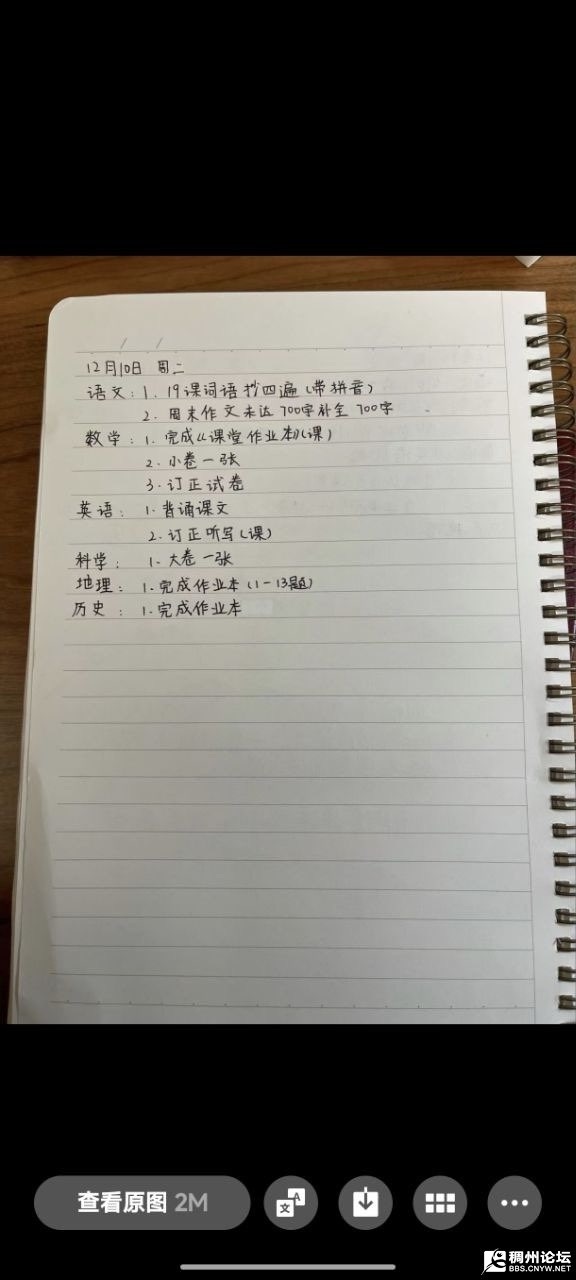 12月10日 周二
语文：1. 19课词语抄四遍（带拼音）
2. 周末作文未达700字补全700字
数学：1. 完成《课堂作业本》（课）
2. 小卷一张
3. 订正试卷
英语：1. 背诵课文
2. 订正听写（课）
科学：1. 大卷一张
地理：1. 完成作业本（1-13题）
历史：1. 完成作业本
查看原图 2M
稠州论坛
BBS.CNYW.NET